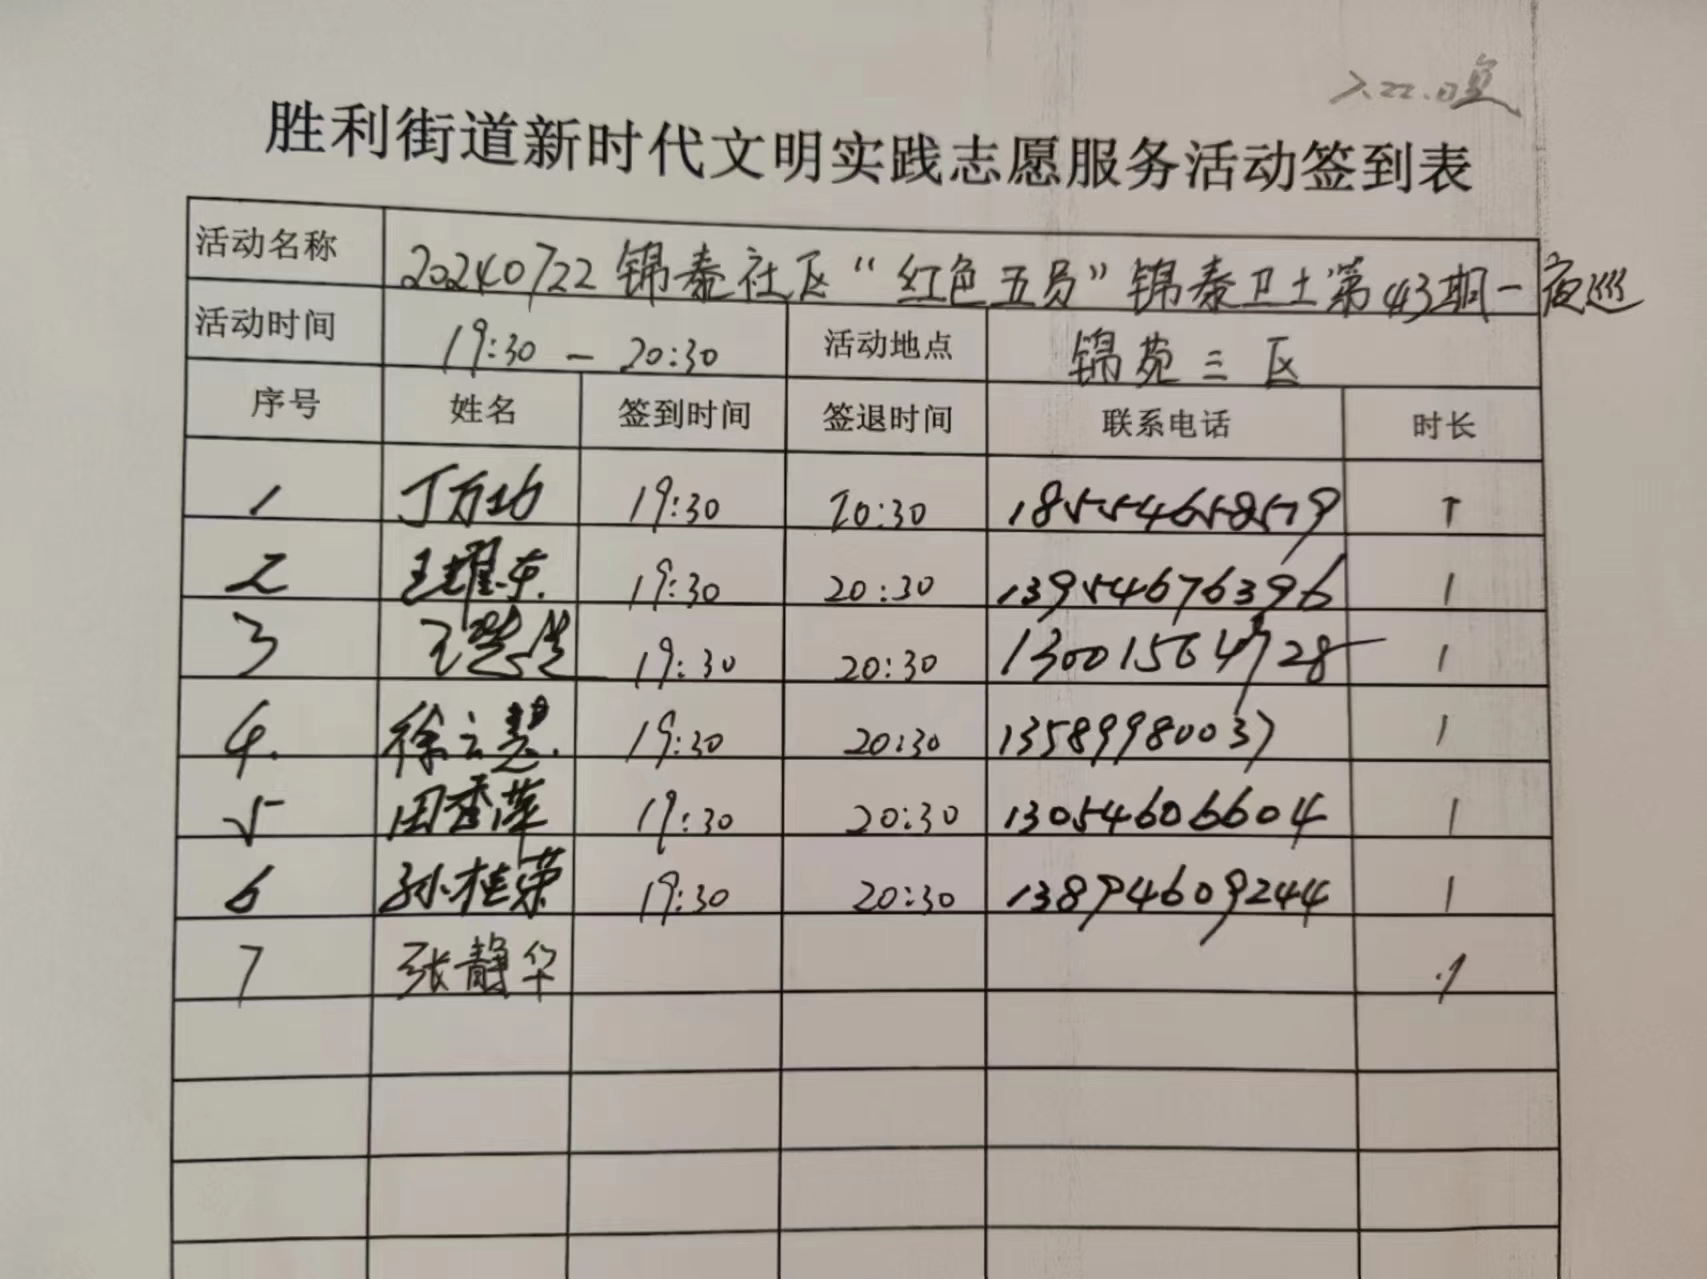 7.22.
胜利街道新时代文明实践志愿服务活动签到表
活动名称 20240722锦泰社区“红色五员”锦泰卫士第43期-夜巡
活动时间 19:30-20:30 活动地点 锦苑三区
序号 姓名 签到时间 签退时间 联系电话 时长
1 丁万功 19:30 20:30 18554658579 1
2 王耀东 19:30 20:30 13954676396 1
3 王 19:30 20:30 13001564728 1
4. 徐云慧 19:30 20:30 13589980037 1
5 田香萍 19:30 20:30 13054606604 1
6 孙桂荣 19:30 20:30 13894609244 1
7 张静华 1